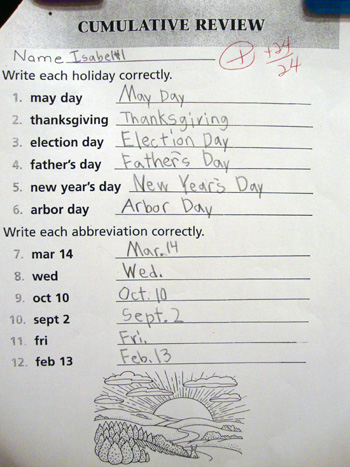 CUMULATIVE REVIEW
Name Isabel #1 + +24/24
Write each holiday correctly.
1. may day May Day
2. thanksgiving Thanksgiving
3. election day Election Day
4. father's day Father's Day
5. new year's day New Year's Day
6. arbor day Arbor Day
Write each abbreviation correctly.
7. mar 14 Mar. 14
8. wed Wed.
9. oct 10 Oct. 10
10. sept 2 Sept. 2
11. fri Fri.
12. feb 13 Feb. 13